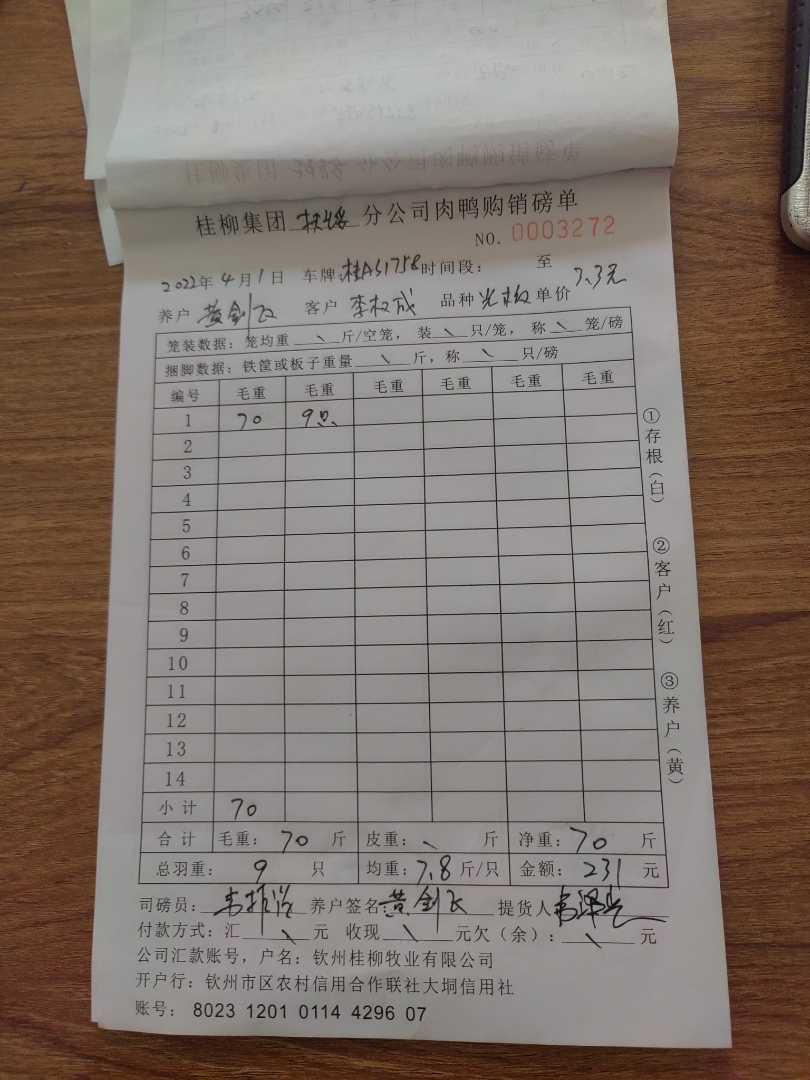 桂柳集团 扶绥 分公司肉鸭购销磅单
NO. 0003272
2022年 4月 1日 车牌:桂A51758 时间段: 至
养户 黄剑飞 客户 李权成 品种 单价 3.3元
笼装数据: 笼均重 \ 斤/空笼, 装 \ 只/笼, 称 \ 笼/磅
捆脚数据: 铁筐或板子重量 \ 斤, 称 \ 只/磅
编号 毛重 毛重 毛重 毛重 毛重 毛重
1 70 9只
2
3
4
5
6
7
8
9
10
11
12
13
14
小计 70
合计 毛重: 70 斤 皮重: \ 斤 净重: 70 斤
总羽重: 9 只 均重: 7.8 斤/只 金额: 231 元
司磅员: 养户签名: 黄剑飞 提货人
付款方式: 汇 \ 元 收现 \ 元欠(余): \ 元
公司汇款账号, 户名: 钦州桂柳牧业有限公司
开户行: 钦州市区农村信用合作联社大垌信用社
账号: 8023 1201 0114 4296 07
①存根(白)
②客户(红)
③养户(黄)